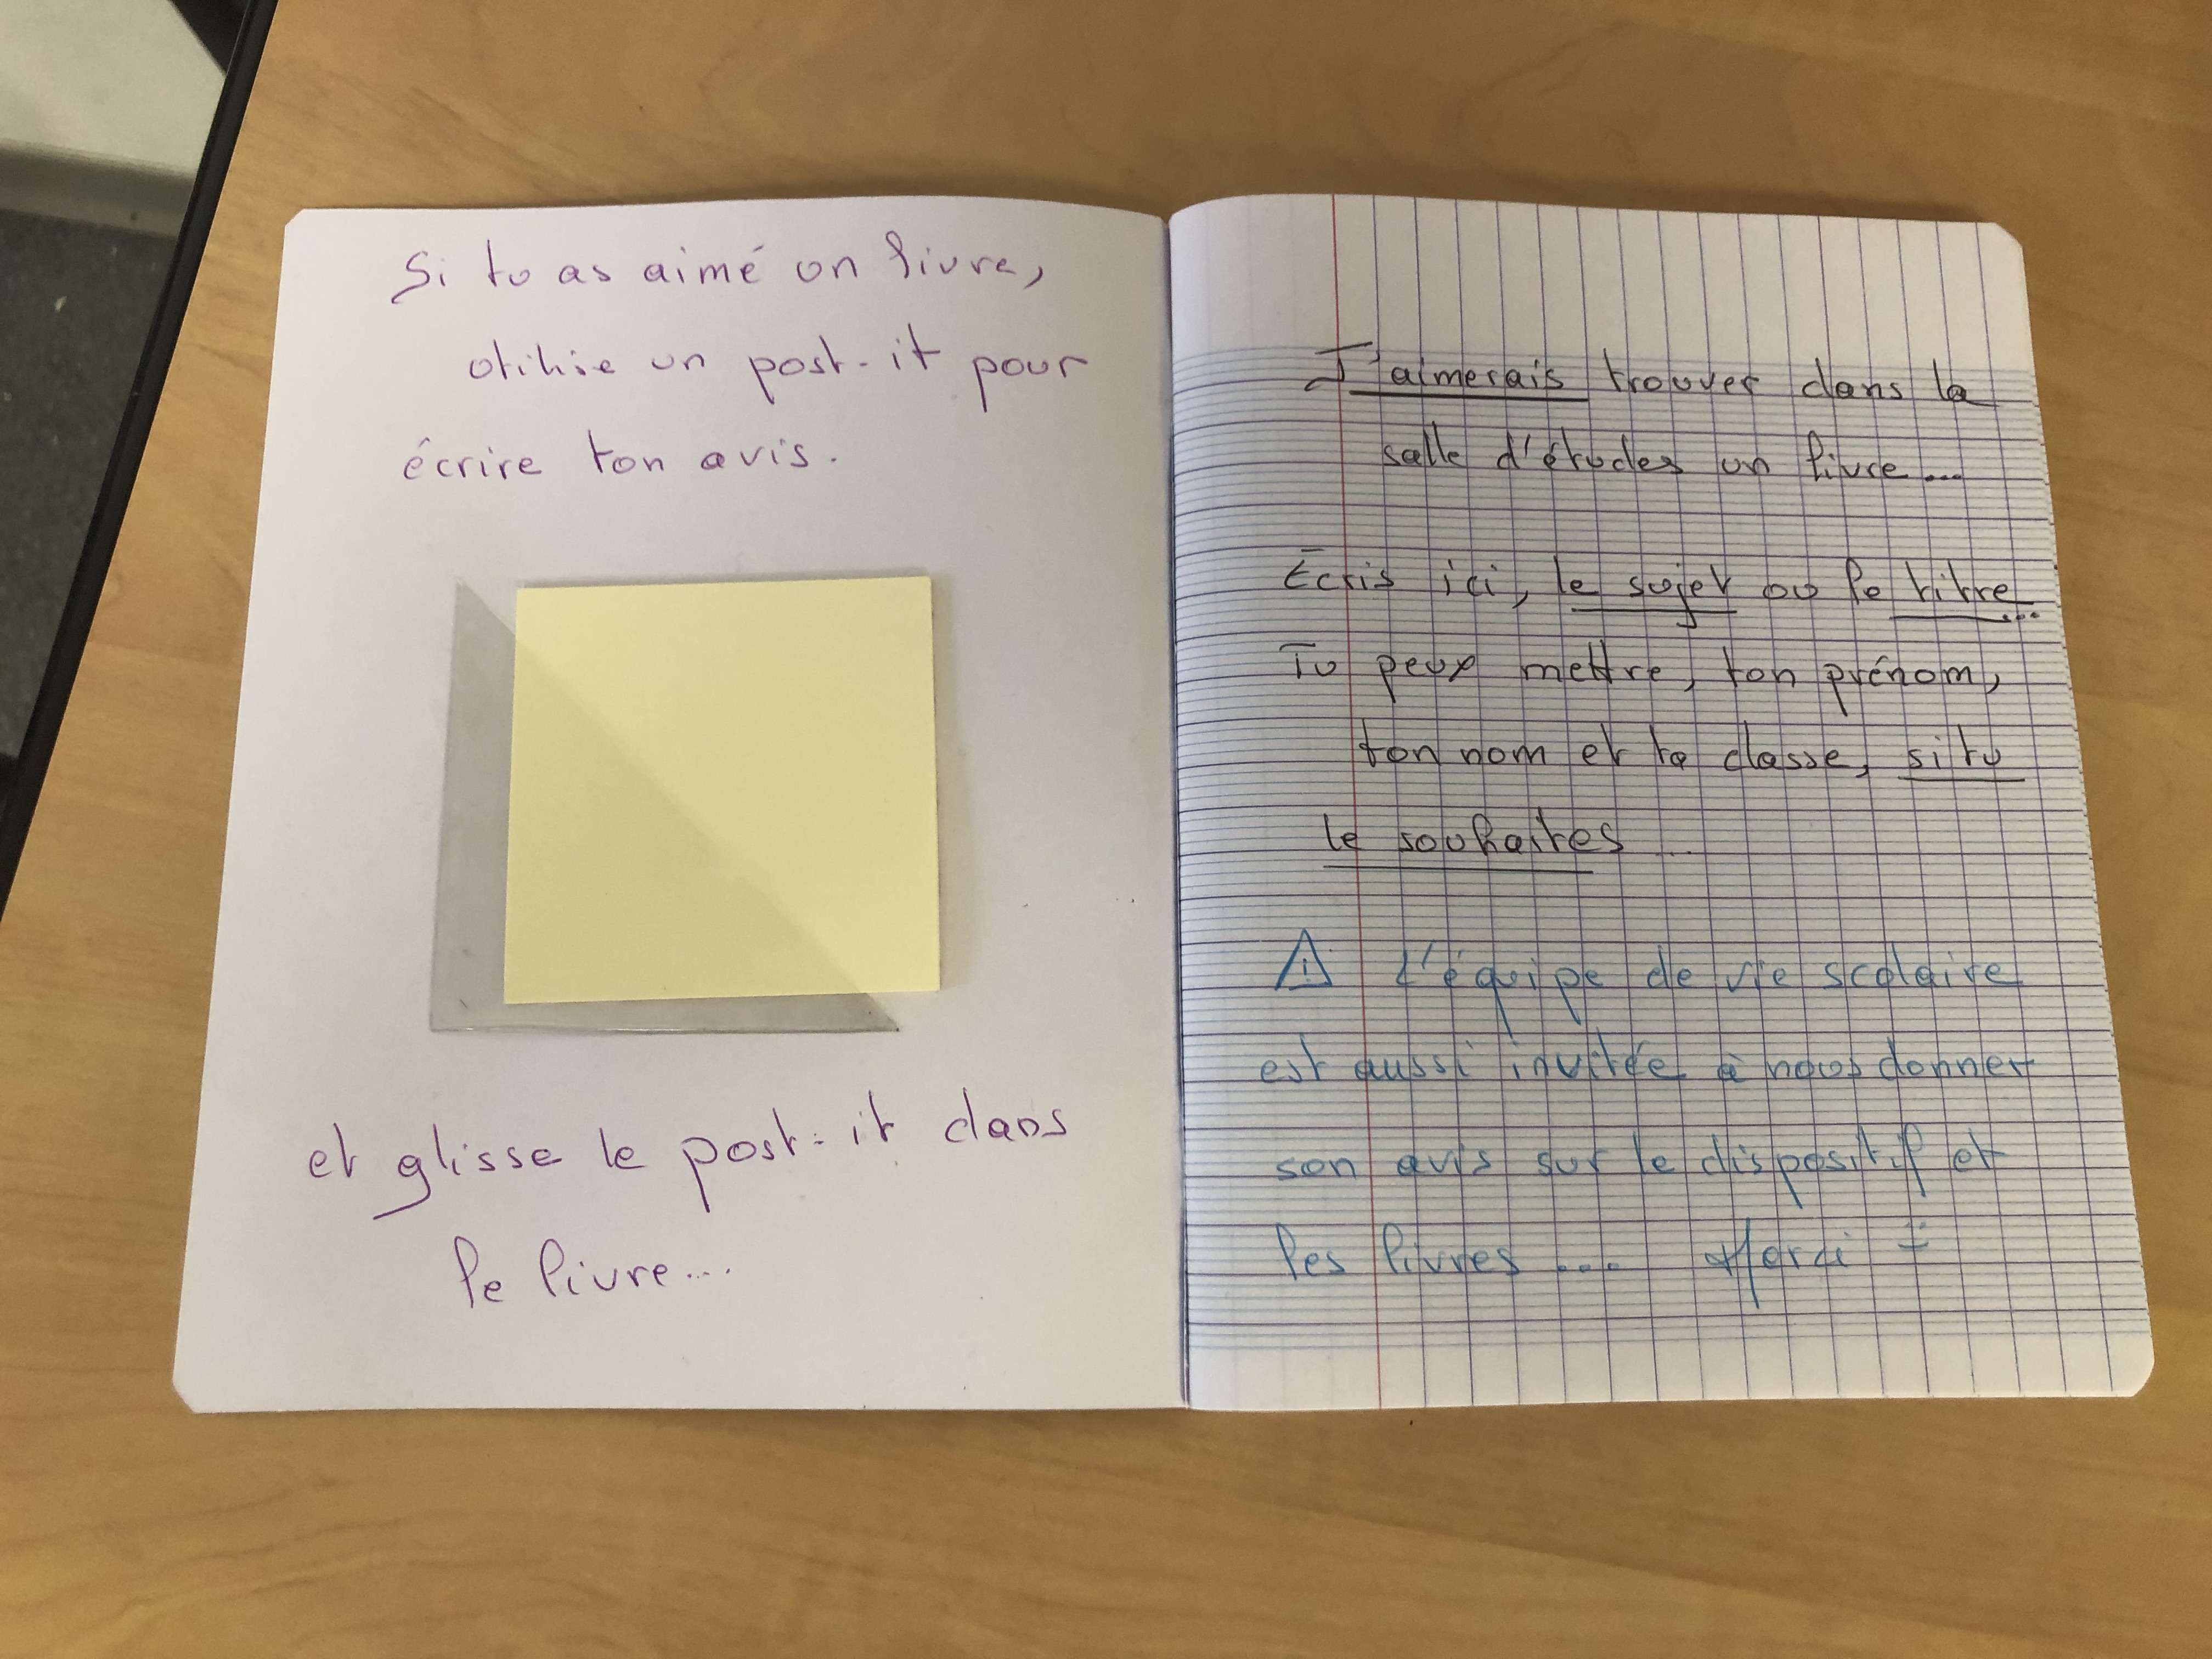 Si tu as aimé un livre,
utilise un post-it pour
écrire ton avis.
et glisse le post-it dans
le livre...
J'aimerais trouver dans la
salle d'études un livre...
Écris ici, le sujet ou le titre...
Tu peux mettre, ton prénom,
ton nom et ta classe, si tu
le souhaites...
⚠ L'équipe de vie scolaire
est aussi invitée à nous donner
son avis sur le dispositif et
les livres... Merci